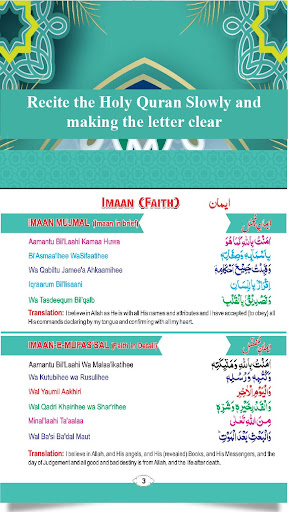 Recite the Holy Quran Slowly and
making the letter clear
IMAAN (FAITH) ایمان
IMAAN MUJMAL (Imaan in brief) ایمان مجمل
Aamantu Bil'Laahi Kamaa Huwa اٰمَنْتُ بِاللّٰهِ كَمَا هُوَ
Bi'Asmaa'ihee WaSifaatihee بِاَسْمَآئِهٖ وَصِفَاتِهٖ
Wa Qabiltu Jamee'a Ahkaamihee وَقَبِلْتُ جَمِيْعَ اَحْكَامِهٖ
Iqraarum Bil'lissani اِقْرَارٌ بِاللِّسَانِ
Wa Tasdeequm Bil'qalb وَتَصْدِيْقٌ بِالْقَلْبِ
Translation: I believe in Allah as He is with all His names and attributes and I have accepted [to obey] all
His commands declaring by my tongue and confirming with all my heart.
IMAAN-E-MUFASSAL (Faith In Detail) ایمان مفصل
Aamantu Bil'Laahi Wa Malaa'ikatihee اٰمَنْتُ بِاللّٰهِ وَمَلٰٓئِكَتِهٖ
Wa Kutubihee wa Rusulihee وَكُتُبِهٖ وَرُسُلِهٖ
Wal Yaumil Aakhiri وَالْيَوْمِ الْاٰخِرِ
Wal Qadri Khairihee wa Shar'rihee وَالْقَدْرِ خَيْرِهٖ وَشَرِّهٖ
Minal'laahi Ta'aalaa مِنَ اللّٰهِ تَعَالٰى
Wal Ba'si Ba'dal Maut وَالْبَعْثِ بَعْدَ الْمَوْتِ
Translation: I believe in Allah, and His angels, and His (revealed) Books, and His Messengers, and the
day of Judgement and all good and bad destiny is from Allah, and the life after death.
3